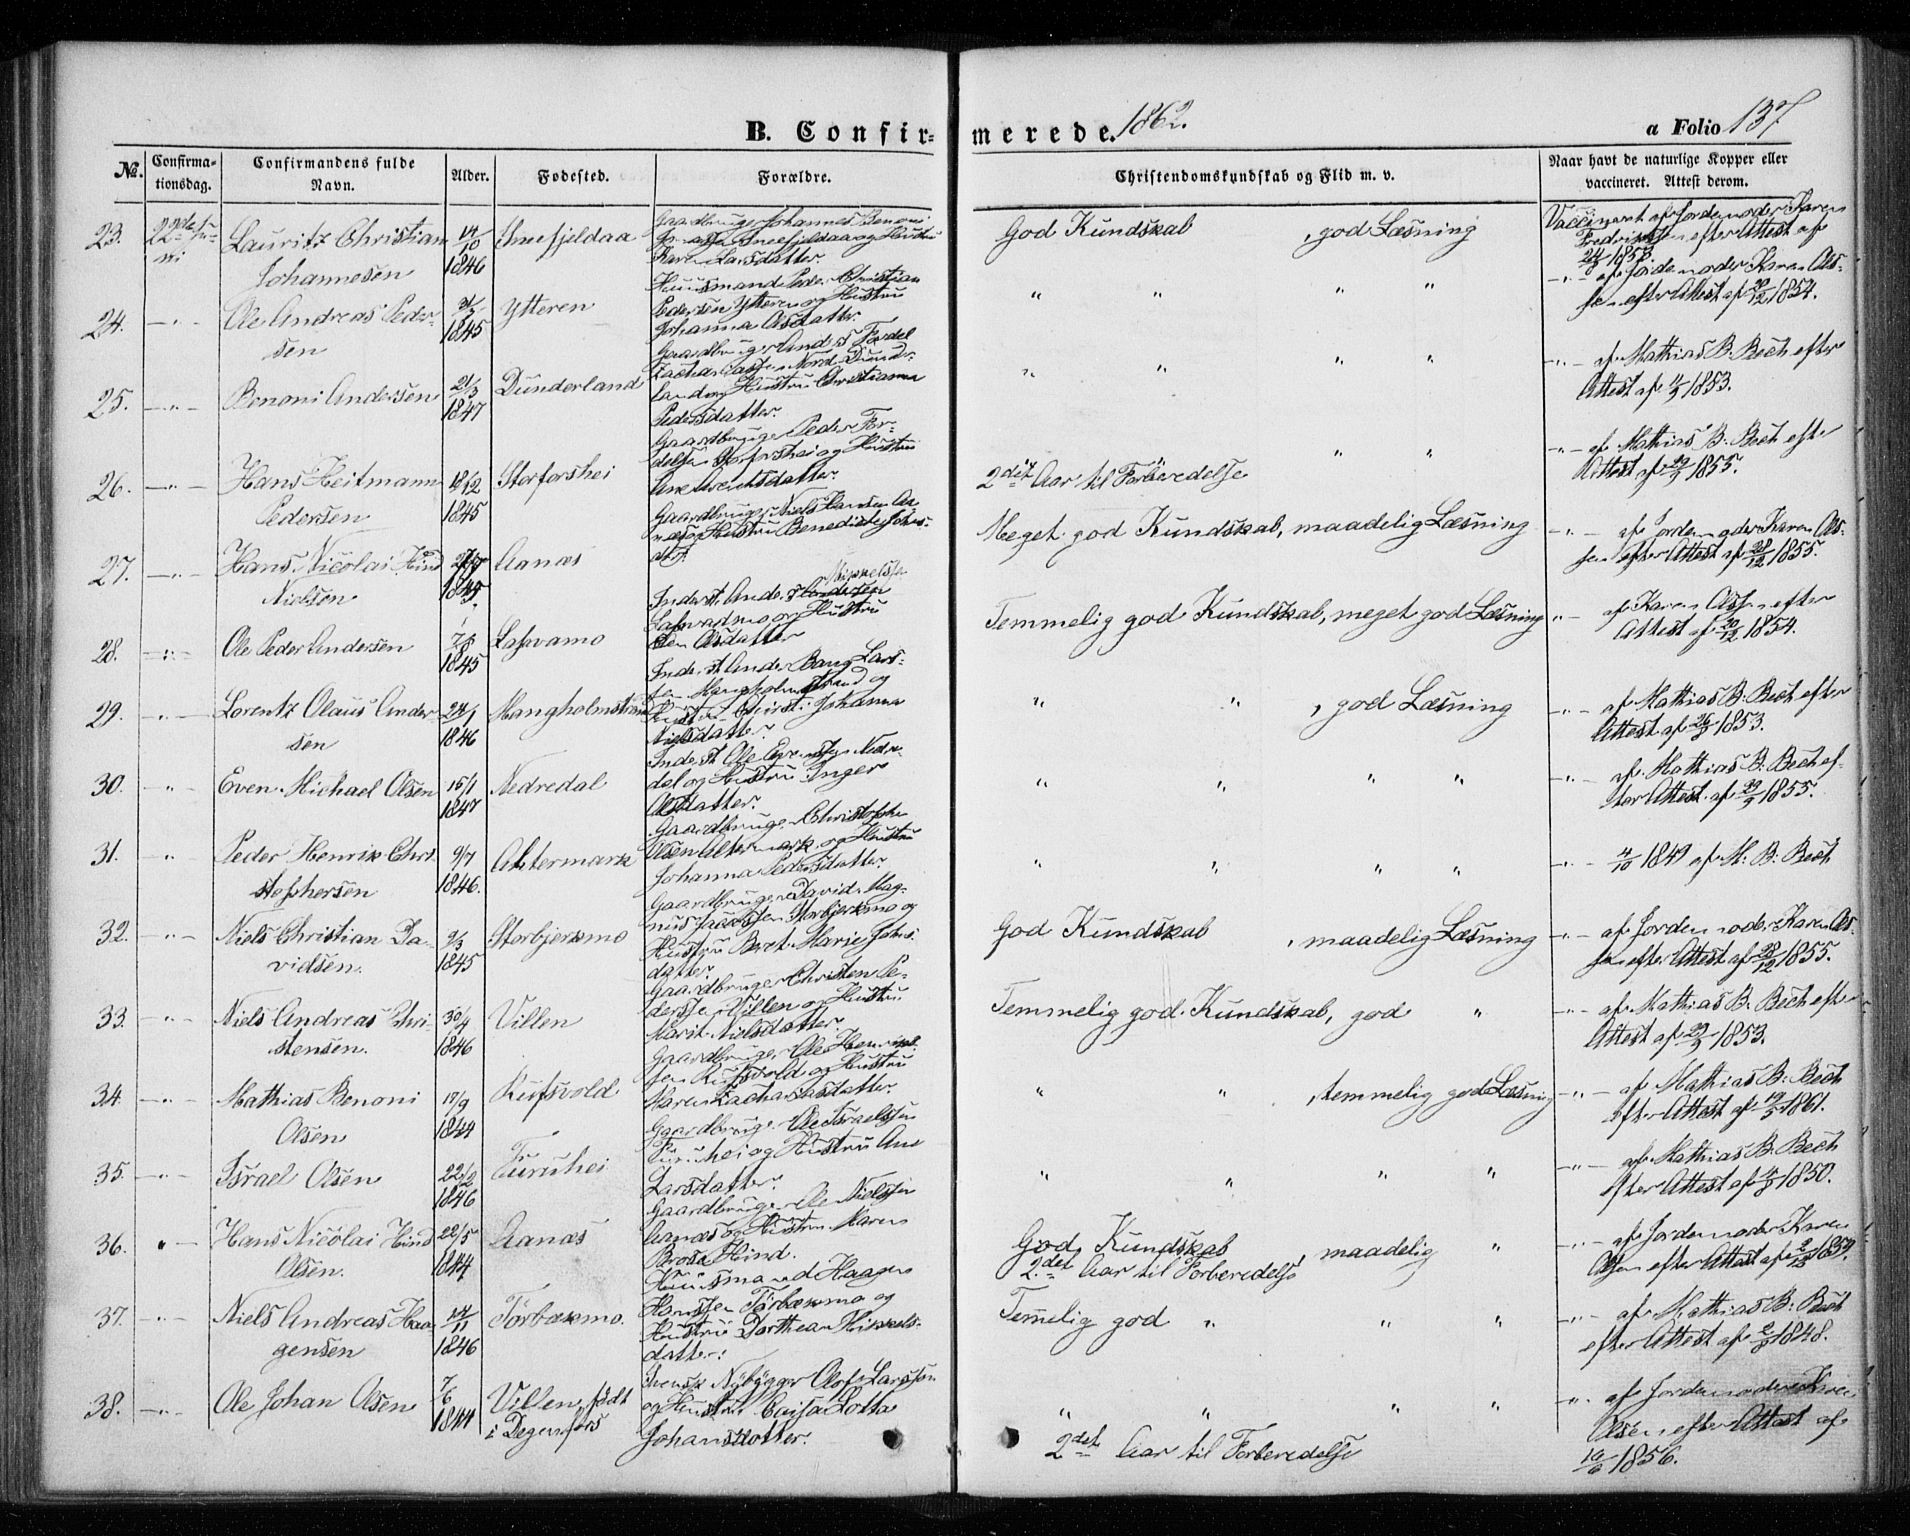 B. Confirmerede. 1862. a Folio 137
No. Confirmationsdag. Confirmandens fulde Navn. Alder. Fødested. Forældre. Christendomskundskab og Flid m. v. Naar havt de naturlige Kopper eller vaccineret. Attest derom.
23. 22de Juni Lauritz Christian 14/10 Snefjeldaa Gaardbruger Johannes Benoni God Kundskab , god Læsning Vaccineret af Jordemoder Karen
Johannesen 1846 Snefjeldaa og Hustru efter Attest af
Karen Larsdatter. 1858
24. -"- Ole Andreas Peder- 1845 Ytteren Huusmand Peder Christian " " " " -"- af Jordemoder Karen Ols-
sen Pedersen Ytteren og Hustru sen efter Attest af 20/12 1854.
Johanna Olsdatter.
25. -"- Benoni Andersen 21/3 Dunderland Gaardbruger " " " " -"- af Mathias B. Bech efter
1847 Zachariassen Nord-Dunder- Attest af 1853.
land og Hustru Christianna
Pedersdatter.
26. -"- Hans Heitmann 18/12 Storforshei Gaardbruger Peder For- " " -"- af Mathias B. Bech efter
Pedersen 1845 delsen Storforshei og Hustru 2det Aar til Forberedelse Attest af 1855.
Ane datter.
27. -"- Hans Nicolai Hind Aanæs Gaardbruger Niels Hansen Aa- Meget god Kundskab, maadelig Læsning -"- af Jordemoder Karen Ols-
Nielsen 1845. næs og Hustru Benedicte sen efter Attest af 28/12 1855.
28. -"- Ole Peder Andersen 1845 Mikkelsen Temmelig god Kundskab, meget god Læsning "- af Karen Olsen efter
og Hustru Attest af 20/12 1854.
Olsdatter
29. "- Lorentz Olaus Ander- 24/1 Mangholmstrand Bang Lars- " " , god Læsning -"- af Mathias B. Bech efter
sen 1846 sen Mangholmstrand og Attest af 1853.
Johanna
Nielsdatter.
30. "- Even Michael Olsen 15/1 Nedredal Inderst Ole Evensen Nedre- " " " " -"- af Mathias B. Bech ef-
1847 dal og Hustru Inger ter Attest af 1855.
Olsdatter.
31. "- Peder Henrik Chri- 9/7 Altermark Gaardbruger Christopher " " " " -"- 1849 af M. B. Bech
stophersen 1846. Olsen Altermark og Hustru
Johanna Pedersdatter.
32. -"- Niels Christian Da- 9/3 Storbjerkmo Gaardbruger David Mag- God Kundskab , maadelig Læsning -"- af Jordemoder Karen Ols-
vidsen. 1845 nus Storbjerkmo og sen efter Attest af 28/12 1855.
Hustru Beret Marie
datter.
33. -"- Niels Andreas Chri- 30/4 Villen Gaardbruger Christen Pe- Temmelig god Kundskab, god " -"- af Mathias B. Bech efter
stensen. 1846 dersen Villen og Hustru Attest af 1853.
Marit Nielsdatter.
34. "- Mathias Benoni 17/9 Rufsvold Gaardbruger Ole Henrik- " " , temmelig god Læsning -"- af Mathias B. Bech
Olsen 1844 sen Rufsvold og Hustru efter Attest af 1861.
Maren Zachariasdatter.
35. -"- Israel Olsen 1846 Furuhei Gaardbruger Ole Israelsen " " " " -"- af Mathias B. Bech
Furuhei og Hustru Ane efter Attest af 1850.
Larsdatter.
36. " - Hans Nicolai Hind 22/5 Aanæs Gaardbruger Ole Nielsen God Kundskab , maadelig " -"- af Jordemoder Karen
Olsen. 1844 Aanæs og Hustru Maren 2det Aar til Forberedelse Olsen efter Attest af
Brosa Hind.
37. "- Niels Andreas Haa- 14/11 Tørbækmo. Huusmand Haagen Temmelig god " " " -"- af Mathias B. Bech
gensen 1846 Hansen Tørbækmo og efter Attest af 1848.
Hustru Dorthea Mikkels-
datter.
38. -"- Ole Johan Olsen 7/6 Villen, født Svensk Nybygger Olof Larsson " " " " ". af Jordemoder
1844 i Degenfors og Hustru Caisa Lotta 2det Aar til Forberedelse Olsen efter Attest af
Johansdotter. 1856.